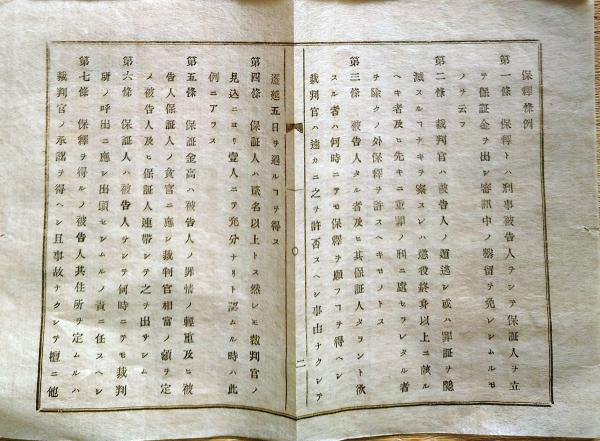 保釋條例
第一條 保釋トハ刑事被告人ヲシテ保証人ヲ立
テ保証金ヲ出シ審訊中ノ勾留ヲ免レシムルモ
ノヲ云フ
第二條 裁判官ハ被告人ノ逃逃シ或ハ罪証ヲ隱
滅スルコナキヲ察スレハ懲役終身以上ニ該ル
ヘキ者及ヒ先キニ重罪ノ刑ニ處セラレタル者
ヲ除クノ外保釋ヲ許スヘキモノトス
第三條 被告人タル者及ヒ其保証人タラント欲
スル者ハ何時ニテモ保釋ヲ願フコヲ得ヘシ
裁判官ハ速カニ之ヲ許否スヘシ事由ナクシテ
二
遷延五日ヲ過ルコヲ得ス
第四條 保証人ハ貳名以上トス然レモ裁判官ノ
見込ニヨリ壹人ニテ充分ナリト認ムル時ハ此
例ニアラス
第五條 保証金高ハ被告人ノ罪情ノ輕重及ヒ被
告人保証人ノ貧富ニ應シ裁判官相當ノ額ヲ定
メ被告人及ヒ保証人連帶シテ之ヲ出サシム
第六條 保証人ハ被告人ヲシテ何時ニテモ裁判
所ノ呼出ニ應シ出頭セシムルノ責ニ任スヘシ
第七條 保釋ヲ得ルノ被告人其住所ヲ定ムルハ
裁判官ノ承諾ヲ得ヘシ且事故ナクシテ擅ニ他